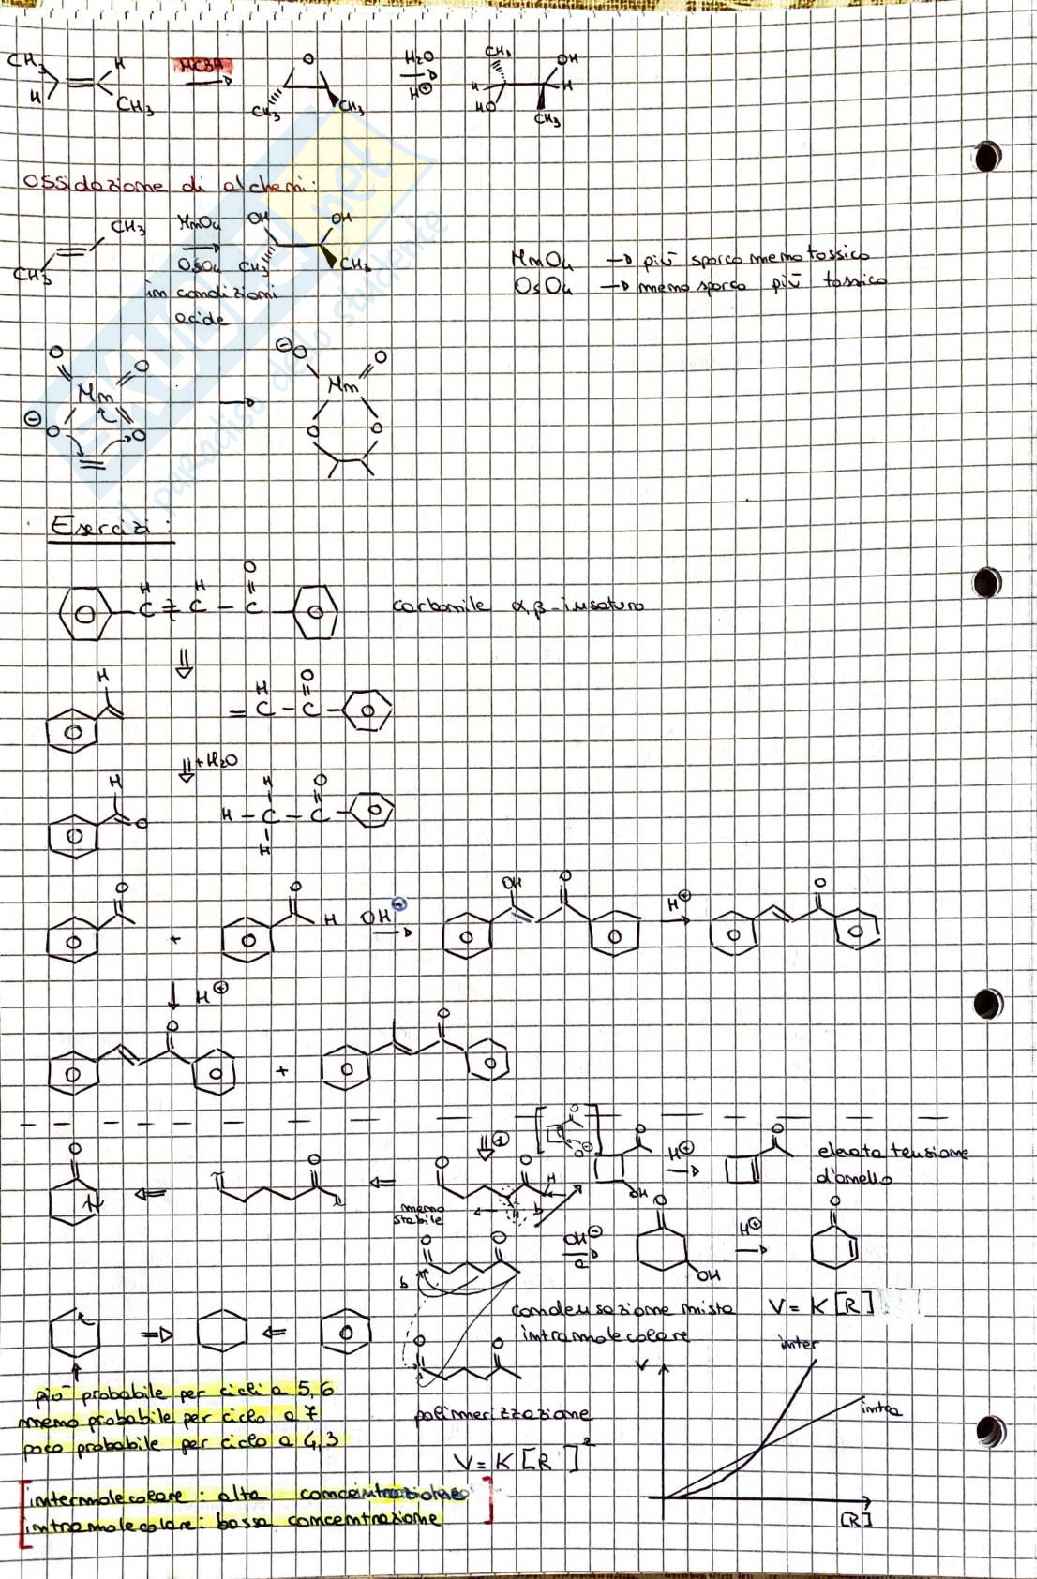 CH3 H MCBA O H2O H⊕ CH3 OH
H CH3 CH3 CH3 H HO H CH3
Ossidazione di alcheni:
CH3 MnO4 OH OH
CH3 OsO4 CH3 CH3
in condizioni
acide
MnO4 → più sporco meno tossico
OsO4 → meno sporco più tossico
O O ⊖O O
Mn Mn
⊖ O O O O
Esercizi:
H H O
C = C - C carbonile α,β-insaturo
H H O
= C - C
+H2O
H H O
O H - C - C
H
O O OH O O
+ H OH⊖ H⊕
H⊕
O O
+
O O O O H⊕ O elevata tensione
d'anello
meno
stabile
H b OH
O O OH⊖ O H⊕ O
b a OH
condensazione mista V = K[R]
intramolecolare
O O
più probabile per cicli a 5,6
meno probabile per ciclo a 7
poco probabile per ciclo a 4,3
polimerizzazione
V = K[R]²
V inter
intra
[R]
intermolecolare: alta concentrazione
intramolecolare: bassa concentrazione